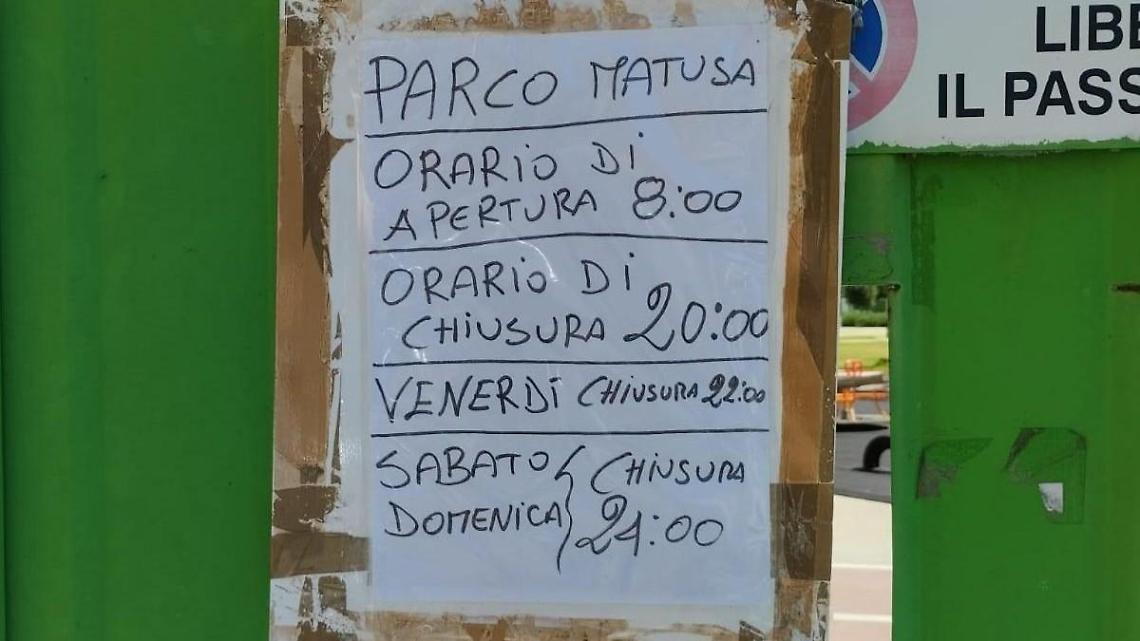 PARCO MATUSA
ORARIO DI
APERTURA 8:00
ORARIO DI
CHIUSURA 20:00
VENERDI CHIUSURA 22:00
SABATO CHIUSURA
DOMENICA 24:00
LIBE
IL PASS